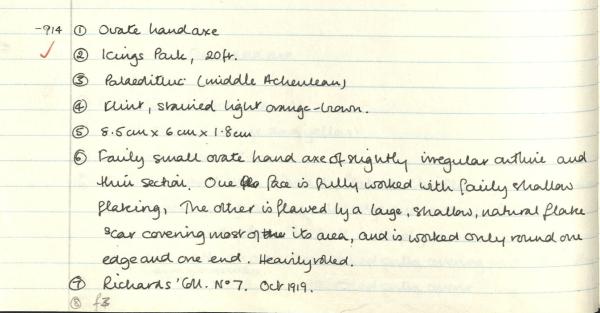 -914 ① Ovate handaxe
② Kings Park, 20ft.
③ Palaeolithic (middle Acheulean)
④ Flint, stained light orange-brown.
⑤ 8.5cm x 6cm x 1.8cm
⑥ Fairly small ovate hand axe of slightly irregular outline and
thin section. One face is fully worked with fairly shallow
flaking, The other is flawed by a large, shallow, natural flake
scar covering most of its area, and is worked only round one
edge and one end. Heavily rolled.
⑦ Richards' Coll. Nº 7. Oct 1919.
⑧ f3